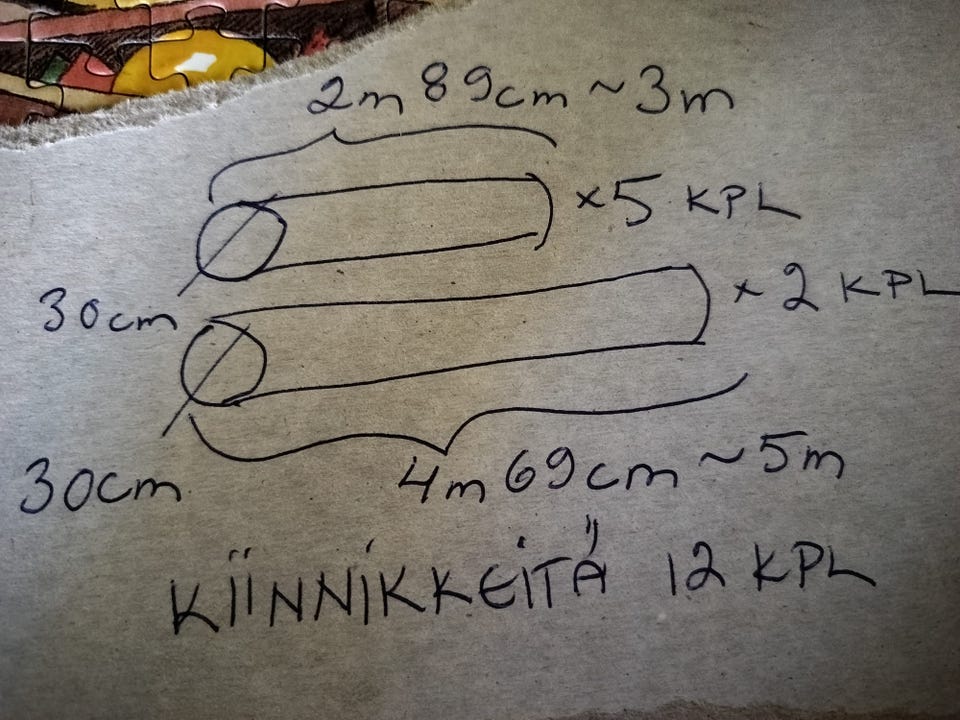 2m 89cm ~ 3m
× 5 KPL
30cm
× 2 KPL
30cm
4m 69cm ~ 5m
KIINNIKKEITÄ 12 KPL